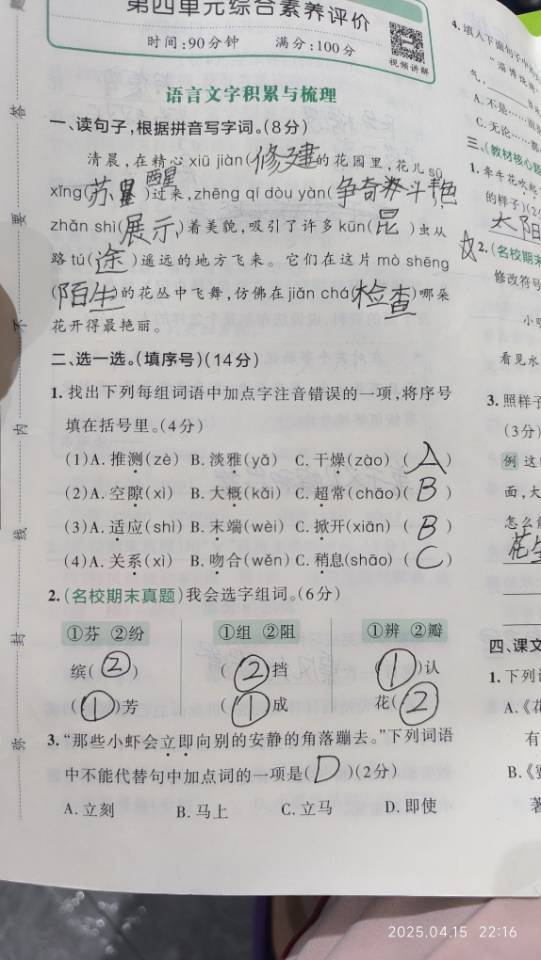 第四单元综合素养评价
时间:90分钟 满分:100分
视频讲解
语言文字积累与梳理
一、读句子,根据拼音写字词。(8分)
清晨,在精心 xiū jiàn(修建)的花园里,花儿 sū
xǐng(苏醒)过来,zhēng qí dòu yàn(争奇斗艳)
zhǎn shì(展示)着美貌,吸引了许多 kūn(昆)虫从
路 tú(途)遥远的地方飞来。它们在这片 mò shēng
(陌生)的花丛中飞舞,仿佛在 jiǎn chá(检查)哪朵
花开得最艳丽。
二、选一选。(填序号)(14分)
1. 找出下列每组词语中加点字注音错误的一项,将序号
填在括号里。(4分)
(1)A. 推测(zè) B. 淡雅(yǎ) C. 干燥(zào) (A)
(2)A. 空隙(xì) B. 大概(kǎi) C. 超常(chāo) (B)
(3)A. 适应(shì) B. 末端(wèi) C. 掀开(xiān) (B)
(4)A. 关系(xì) B. 吻合(wěn) C. 稍息(shāo) (C)
2. (名校期末真题)我会选字组词。(6分)
①芬 ②纷 ①组 ②阻 ①辨 ②瓣
缤(②) (②)挡 (①)认
(①)芳 (①)成 花(②)
3. “那些小虾会立即向别的安静的角落蹦去。”下列词语
中不能代替句中加点词的一项是(D)(2分)
A. 立刻 B. 马上 C. 立马 D. 即使
答
要
不
内
线
封
弥
4. 填入下面句子中的
气,
A. 不是……
C. 无论……
三、(教材核心
1. 牵牛花吹起
的样子)(2
太阳
2. (名校期末
修改符号
小
看见水
3. 照样子
(3分)
例 这
面,大
怎么
花生
四、课文
1. 下列
A.《花
有
B.《
著
2025.04.15 22:16